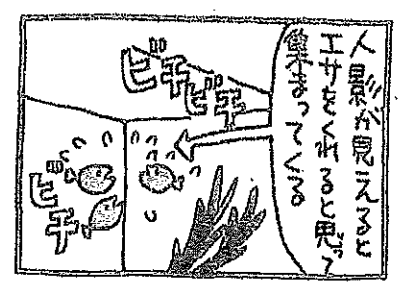 人影が見えると
エサをくれると思って
集まってくる
ビチビチ
ビチ